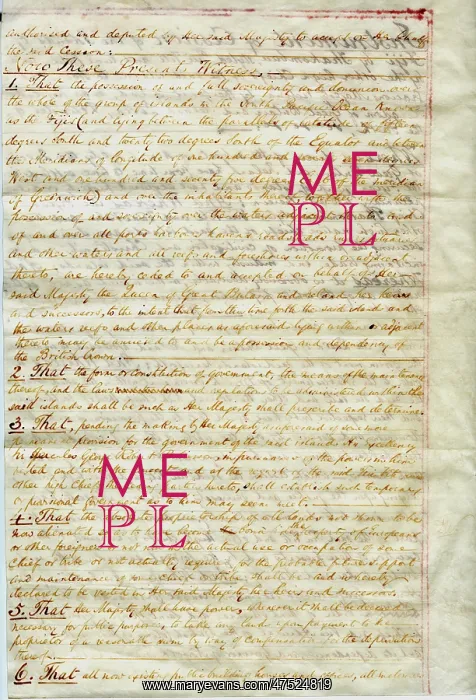 authorised and deputed by Her said Majesty to accept on Her behalf
the said Cession:
Now These Presents Witness
1. That the possession of and full sovereignty and dominion over
the whole of the group of islands in the South Pacific Ocean known
as the Fijis (and lying between the parallels of latitude of fifteen
degrees South and twenty two degrees South of the Equator and between
the Meridians of longitude of one hundred and seventy
West and one hundred and seventy five degrees of the meridian
of Greenwich) and over the inhabitants thereof together with the
possession of and sovereignty over the waters adjacent thereto and
of and over all ports harbours havens roadsteads rivers estuaries
and other waters and all reefs and foreshores within or adjacent
thereto, are hereby ceded to and accepted on behalf of Her
said Majesty the Queen of Great Britain and Ireland her heirs
and Successors, to the intent that from this time forth the said islands and
the waters reefs and other places as aforesaid lying within or adjacent
thereto may be annexed to and be a possession and dependency of
the British Crown.
2. That the form or constitution of government, the means of the maintenance
thereof, and the laws and regulations to be administered within the
said islands shall be such as Her Majesty shall prescribe and determine.
3. That, pending the making by Her Majesty as aforesaid of some more
permanent provision for the government of the said islands His Excellency
Sir Hercules George Robert
other high Chiefs shall establish such temporary
or provisional government as to him may seem meet.
4. That the absolute proprietorship of all lands not shown to be
now alienated so as to have become bona fide the property of Europeans
or other foreigners or not in the actual use or occupation of some
Chief or tribe or not actually required for the probable future support
and maintenance of some chief or tribe shall be and is hereby
declared to be vested in Her said Majesty her heirs and successors.
5. That Her Majesty shall have power, whenever it shall be deemed
necessary for public purposes, to take any lands upon payment to the
proprietor of a reasonable sum by way of compensation for the deprivation
thereof.
6. That all now existing public buildings houses and offices, all
ME
PL
ME
PL
www.maryevans.com/47524819